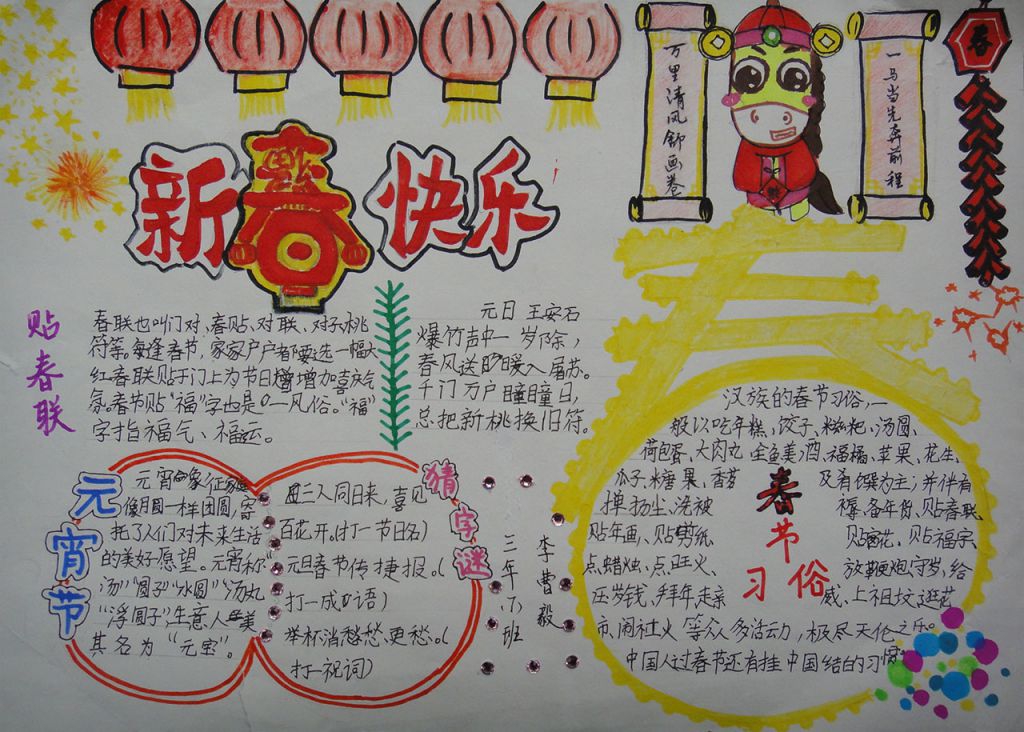 新春快乐
万里清风舒画卷
一马当先奔前程
春
贴春联
春联也叫门对、春贴、对联、对子,桃
符等,每逢春节,家家户户都要选一幅大
红春联贴于门上为节日增加喜庆气
氛。春节贴“福”字也是一风俗。“福”
字指福气、福运。
元日 王安石
爆竹声中一岁除,
春风送暖入屠苏。
千门万户曈曈日,
总把新桃换旧符。
元宵节
元宵象征
像月圆一样团圆,寄
托了人们对未来生活
的美好愿望。元宵称
汤”“圆子”“水圆”“汤丸
“浮圆子”,生意人美
其名为“元宝”。
猜字谜
三人同日来,喜见
百花开。(打一节日名)
元旦春节传捷报。(
打一成语)
举杯消愁愁更愁。(
打一祝词)
三年(7)班
李曹毅
春
春节习俗
汉族的春节习俗,一
般以吃年糕、饺子、糍粑、汤圆、
荷包蛋、大肉丸、全鱼、美酒、福橘、苹果、花生、
瓜子、糖果、香茗及肴馔为主;并伴有
掸扬尘、洗被褥、备年货、贴春联、
贴年画、贴剪纸、贴窗花、贴福字、
点蜡烛、点旺火、放鞭炮、守岁、给
压岁钱、拜年、走亲戚、上祖坟、逛花
市、闹社火等众多活动,极尽天伦之乐。
中国人过春节还有挂中国结的习惯